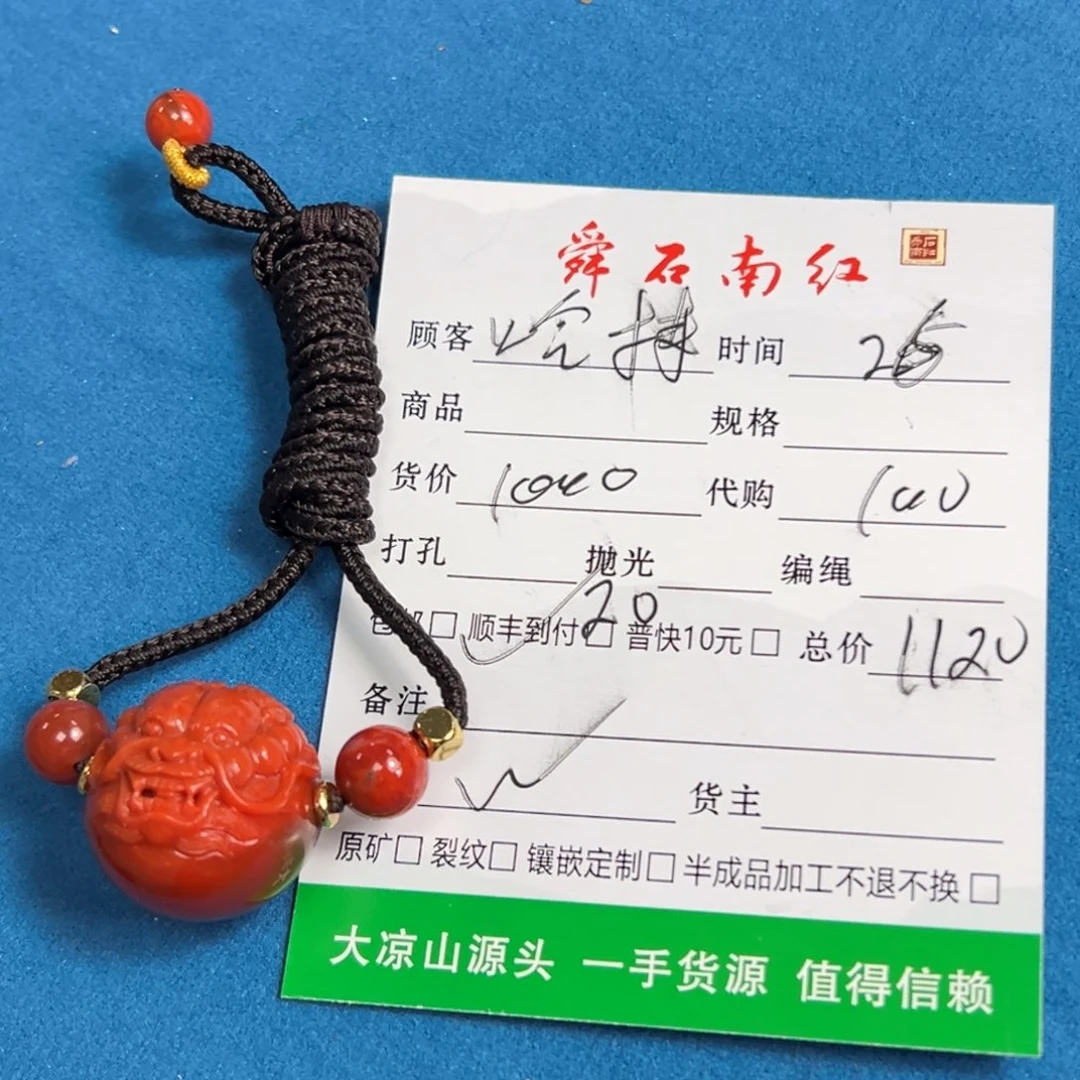 舜石南红
顾客 哈林 时间
商品 规格
货价 1040 代购
打孔 抛光 编绳
包邮□ 顺丰到付□ 20 普快10元□ 总价 1120
备注
货主
原矿□ 裂纹□ 镶嵌定制□ 半成品加工不退不换□
大凉山源头 一手货源 值得信赖